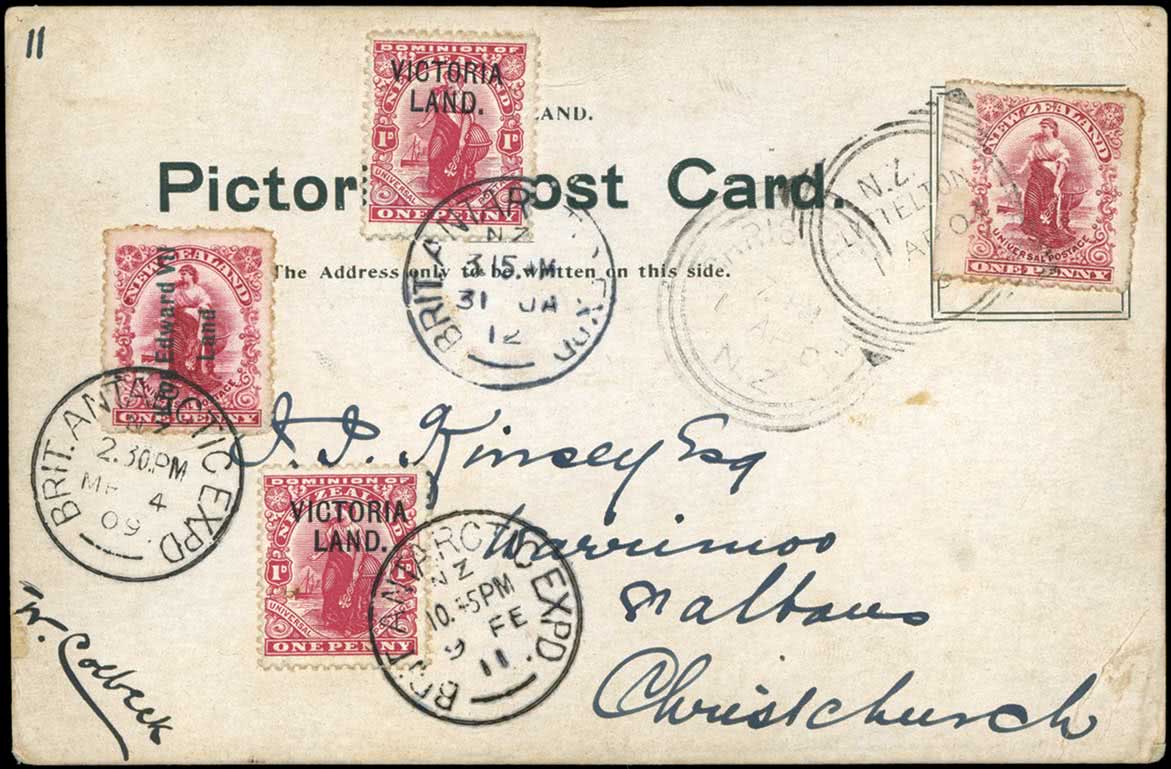 11
DOMINION OF
NEW ZEALAND
VICTORIA
LAND.
1D 1D
UNIVERSAL POSTAGE
ONE PENNY
LAND.
Pictor ost Card.
The Address only to be written on this side.
NEW ZEALAND
UNIVERSAL POSTAGE
ONE PENNY
N.Z.
LYTTELTON
AP 04
N.Z
BRIT. ANTARCTIC EXPD
NZ
3 15 M
31 JA
12
NEW ZEALAND
King Edward VII
Land
UNIVERSAL POSTAGE
ONE PENNY
BRIT. ANTARCTIC EXPD
2.30.PM
MR 4
09.
DOMINION OF
NEW ZEALAND
VICTORIA
LAND.
1D 1D
UNIVERSAL
ONE PENNY
BRIT. ANTARCTIC EXPD.
NZ
10.45PM
9 FE
11
J. J. Kinsey Esq
Warrimoo
Christchurch
W. Colbeck